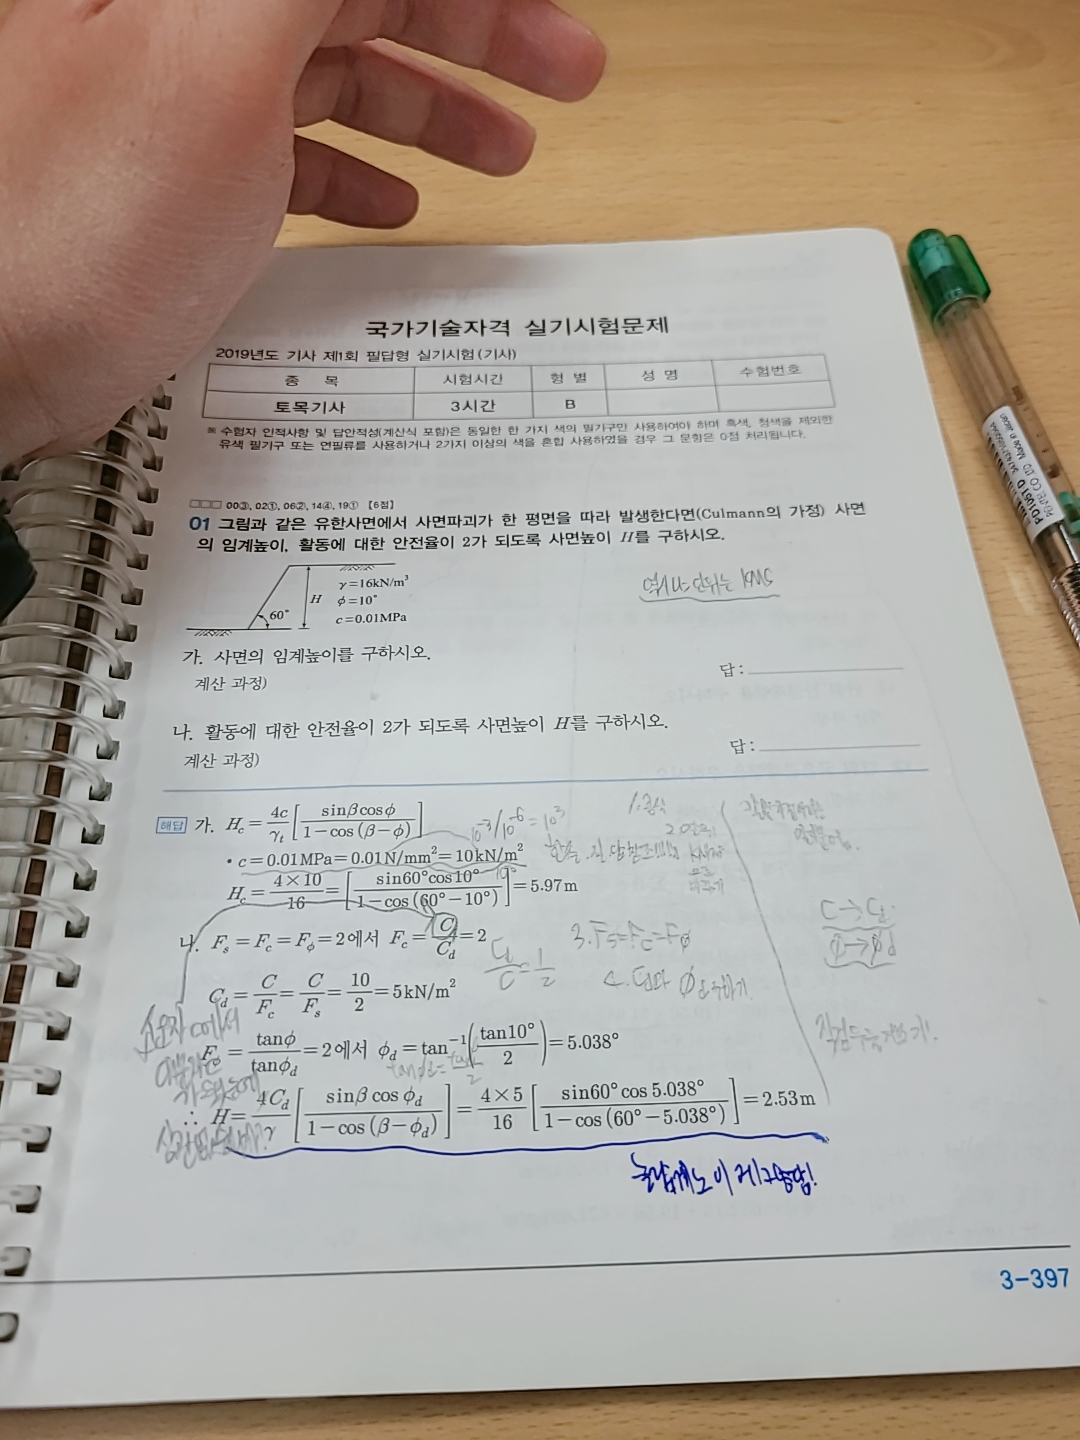 국가기술자격 실기시험문제
2019년도 기사 제1회 필답형 실기시험(기사)
종 목 시험시간 형 별 성 명 수험번호
토목기사 3시간 B
※ 수험자 인적사항 및 답안작성(계산식 포함)은 동일한 한 가지 색의 필기구만 사용하여야 하며 흑색, 청색을 제외한
유색 필기구 또는 연필류를 사용하거나 2가지 이상의 색을 혼합 사용하였을 경우 그 문항은 0점 처리됩니다.
□□□ 00③, 02①, 06②, 14④, 19① 【6점】
01 그림과 같은 유한사면에서 사면파괴가 한 평면을 따라 발생한다면(Culmann의 가정) 사면
의 임계높이, 활동에 대한 안전율이 2가 되도록 사면높이 H를 구하시오.
γ=16kN/m³
H ϕ=10°
60° c=0.01MPa
가. 사면의 임계높이를 구하시오.
계산 과정) 답:
나. 활동에 대한 안전율이 2가 되도록 사면높이 H를 구하시오.
계산 과정) 답:
해답 가. H_c = 4c/γ_t [sinβcosϕ / 1-cos(β-ϕ)]
10⁻³/10⁻⁶ = 10³
1. 공식
• c=0.01MPa=0.01N/mm²=10kN/m²
H_c = 4×10/16 = [sin60°cos10° / 1-cos(60°-10°)] = 5.97m
나. F_s=F_c=F_ϕ=2에서 F_c = C/C_d = 2
3. Fs=Fc=Fϕ
Cd/C = 1/2
C→Cd
ϕ→ϕd
C_d = C/F_c = C/F_s = 10/2 = 5kN/m²
F_ϕ = tanϕ/tanϕ_d = 2에서 ϕ_d = tan⁻¹(tan10°/2) = 5.038°
∴ H = 4C_d/γ [sinβcosϕ_d / 1-cos(β-ϕ_d)] = 4×5/16 [sin60°cos5.038° / 1-cos(60°-5.038°)] = 2.53m
3-397
PD105T-D
Made in Japan